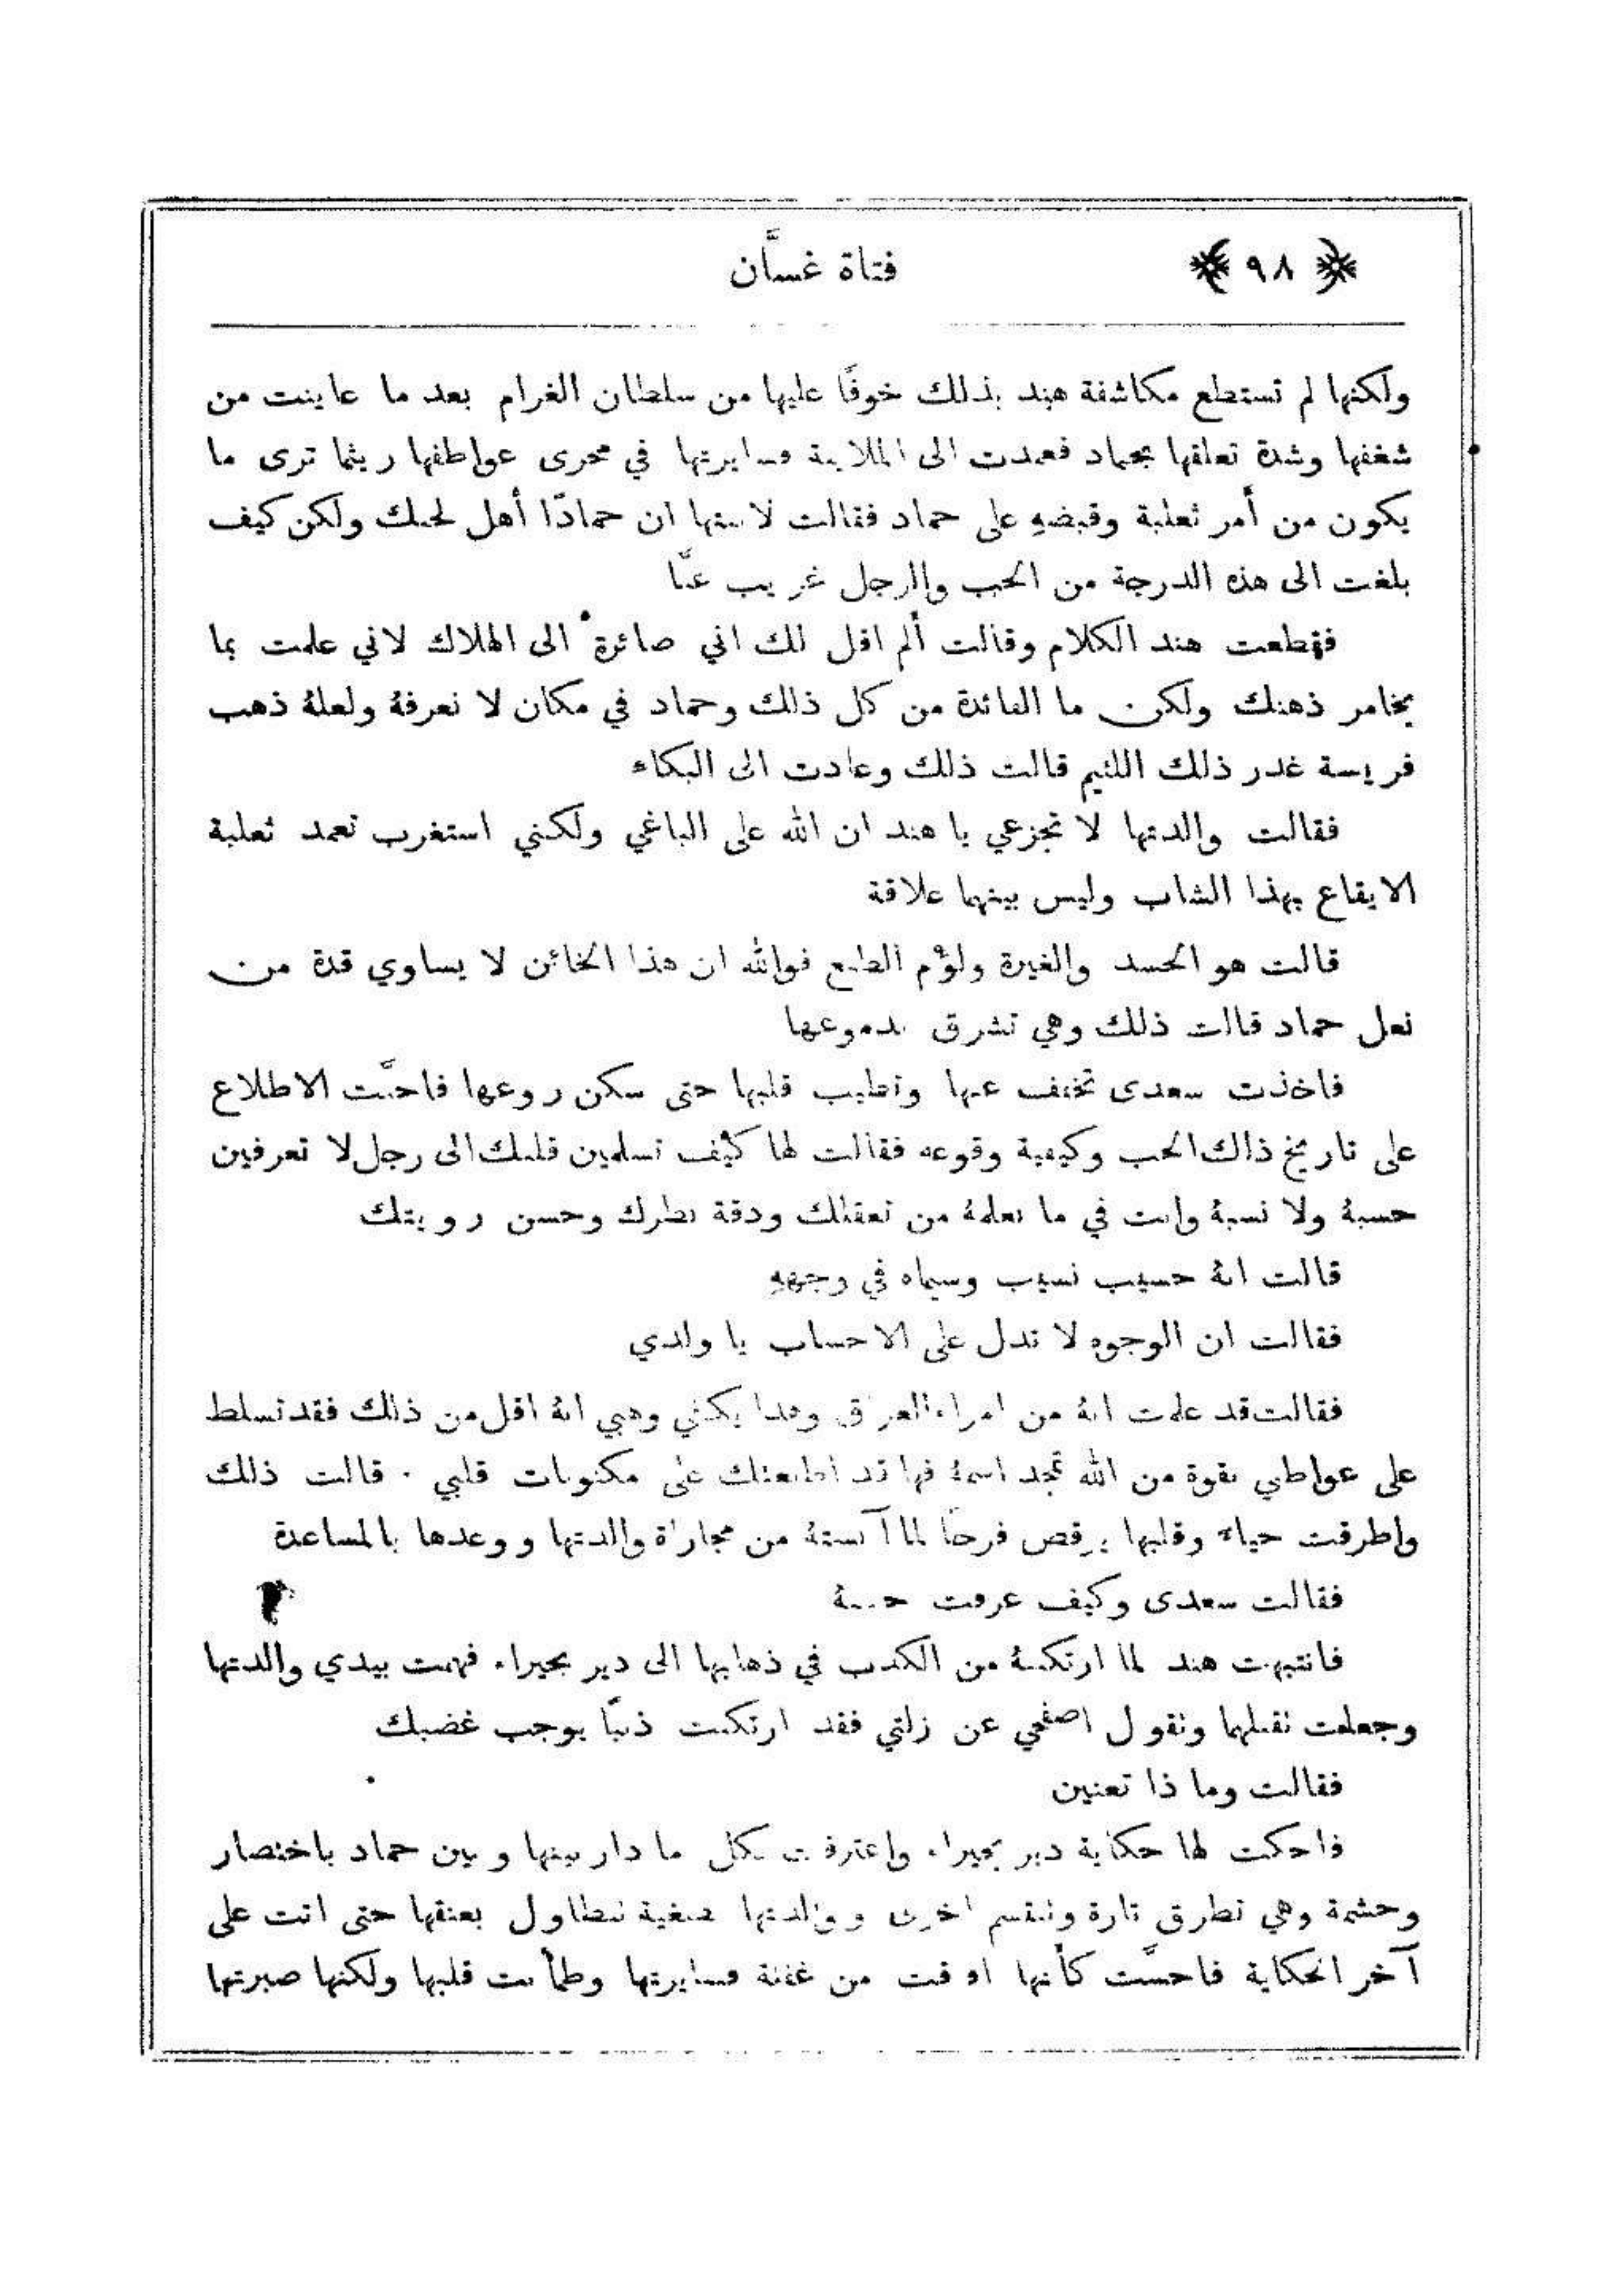 ﴿ ٩٨ ﴾ فتاة غسَّان
ولكنها لم تستطع مكاشفة هند بذلك خوفًا عليها من سلطان الغرام بعد ما عاينت من
شغفها وشدة تعلقها بحماد فعمدت الى الملاينة ومسايرتها في مجرى عواطفها ريثما ترى ما
يكون من أمر ثعلبة وقبضهِ على حماد فقالت لابنتها ان حمادًا أهل لحبك ولكن كيف
بلغت الى هذه الدرجة من الحب والرجل غريب عنَّا
فقطعت هند الكلام وقالت ألم اقل لك اني صائرة الى الهلاك لاني علمت بما
يخامر ذهنك ولكن ما الفائدة من كل ذلك وحماد في مكان لا نعرفهُ ولعلهُ ذهب
فريسة غدر ذلك اللئيم قالت ذلك وعادت الى البكاء
فقالت والدتها لا تجزعي يا هند ان الله على الباغي ولكنني استغرب تعمد ثعلبة
الايقاع بهذا الشاب وليس بينهما علاقة
قالت هو الحسد والغيرة ولؤم الطبع فوالله ان هذا الخائن لا يساوي قدة من
نعل حماد قالت ذلك وهي تشرق بدموعها
فاخذت سعدى تخفف عنها وتطيب قلبها حتى سكن روعها فاحبَّت الاطلاع
على تاريخ ذلك الحب وكيفية وقوعه فقالت لها كيف تسلمين قلبك الى رجل لا تعرفين
حسبهُ ولا نسبهُ وانت في ما نعلمهُ من تعقلك ودقة نظرك وحسن رويتك
قالت انهُ حسيب نسيب وسيماه في وجههِ
فقالت ان الوجوه لا تدل على الاحساب يا ولدي
فقالت قد علمت انهُ من امراء العراق وهذا يكفي وهبي انهُ اقل من ذلك فقد تسلط
على عواطفي بقوة من الله تمجد اسمهُ فها قد اطلعتك على مكنونات قلبي . قالت ذلك
واطرقت حياء وقلبها يرقص فرحًا لما آنستهُ من مجاراة والدتها ووعدها بالمساعدة
فقالت سعدى وكيف عرفت حسبهُ
فانتبهت هند لما ارتكبتهُ من الكذب في ذهابها الى دير بحيراء فهمت بيدي والدتها
وجعلت تقبلهما وتقول اصفحي عن زلتي فقد ارتكبت ذنبًا يوجب غضبك
فقالت وما ذا تعنين
فاحكت لها حكاية دير بحيراء واعترفت بكل ما دار بينها وبين حماد باختصار
وحشمة وهي تطرق تارة وتبتسم اخرى ووالدتها مصغية تتطاول بعنقها حتى اتت على
آخر الحكاية فاحسَّت كأنها افاقت من غفلة فسايرتها وطمأنت قلبها ولكنها صبرتها